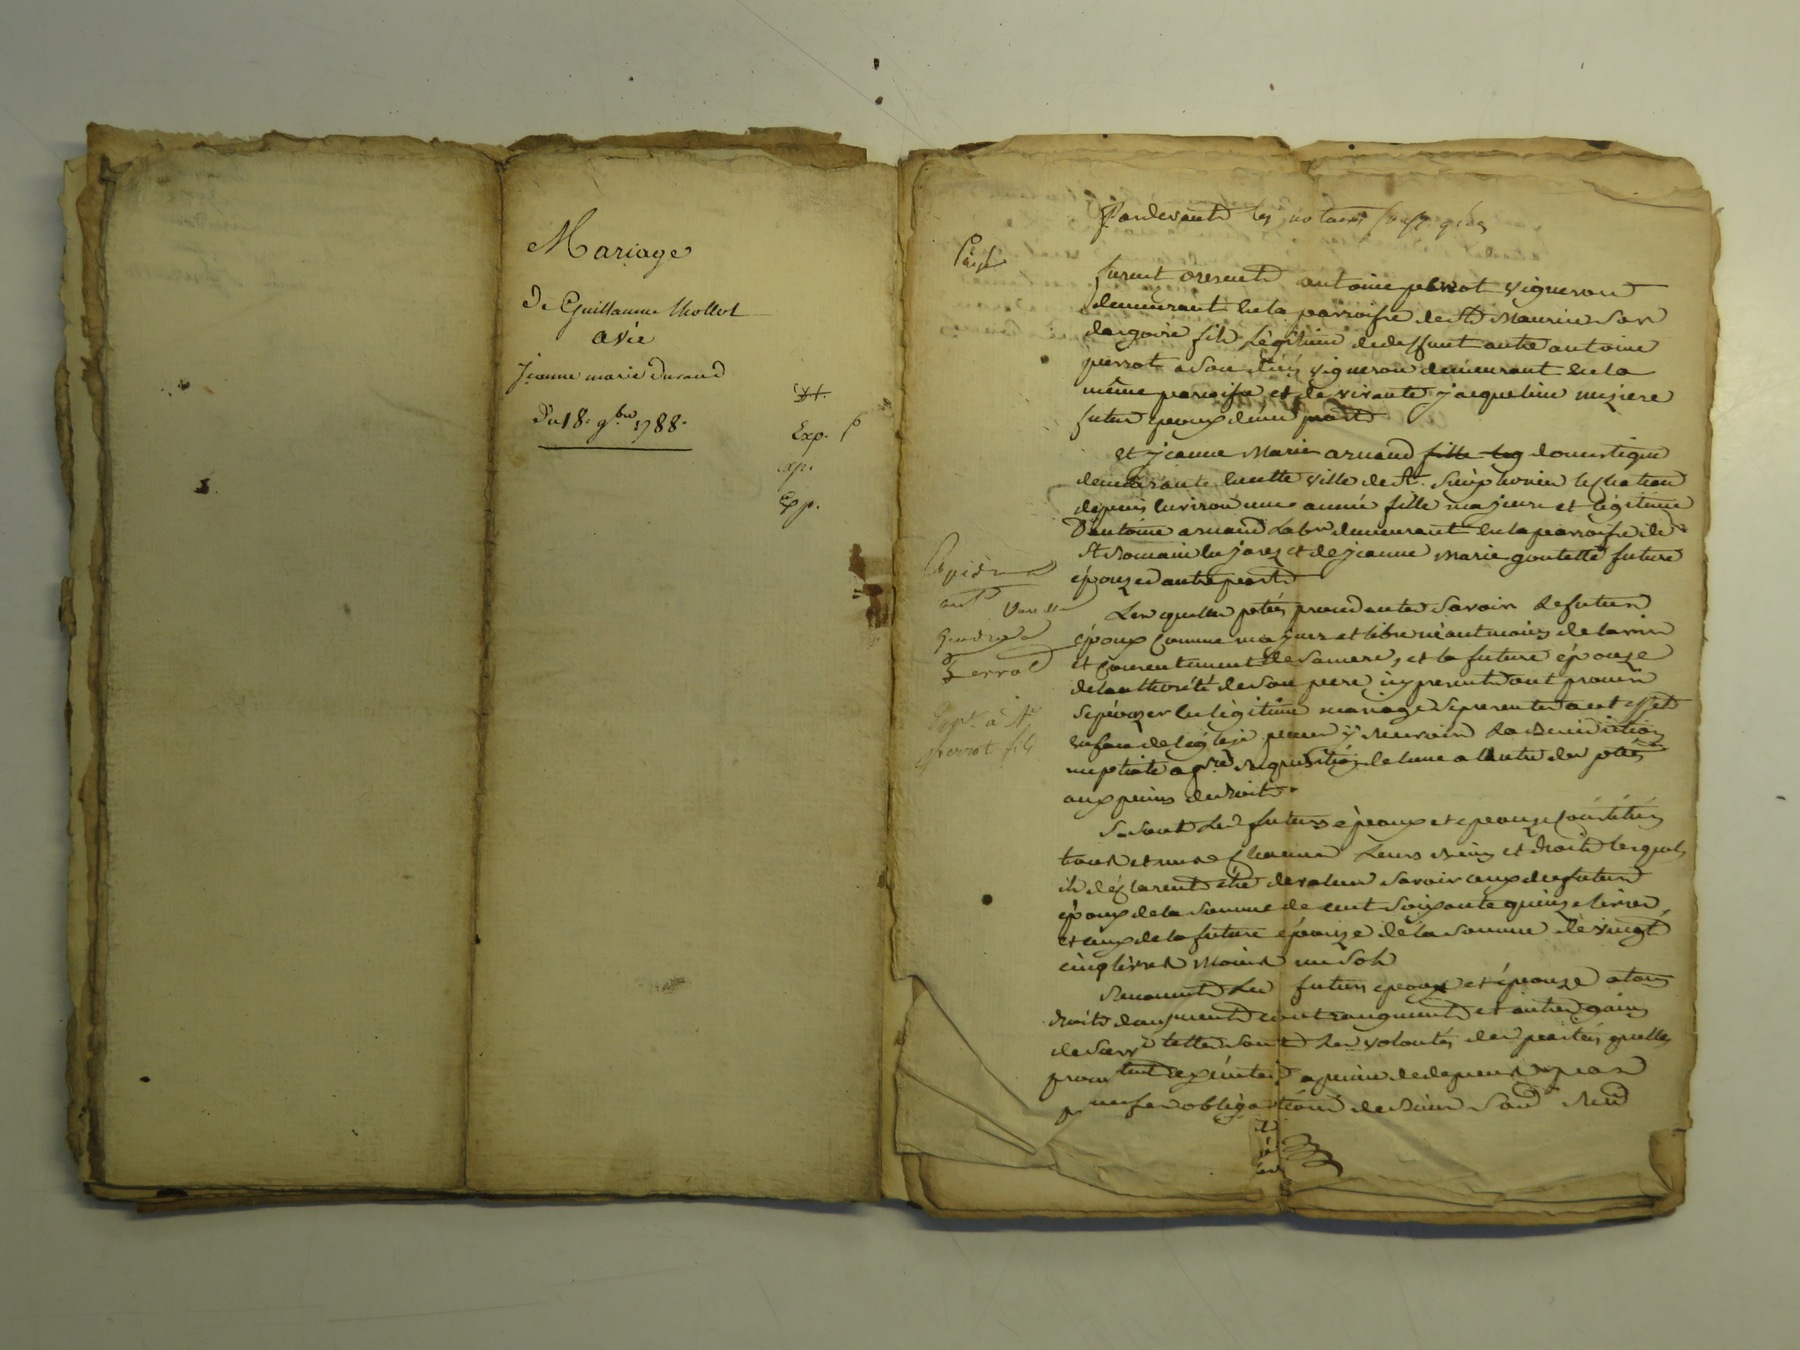 Mariage
De Guillaume thollot
avec
Jeanne marie durand
Du 18. 9bre 1788.
Exp.
Exp.
Exp.
Pardevant les notaires soussignés
furent presents antoine perrot vigneron
demeurant en la parroisse de St Maurice sur
dargoire fils légitime de deffunt autre antoine
perrot a son décés vigneron demeurant en la
même parroisse et de vivante jacqueline miziere
futur epoux d'une part
et jeanne Marie arnaud fille leg domestique
demeurante en cette ville de St. Simphorien le chateau
depuis environ une année fille majeure et légitime
D'antoine arnaud Labr demeurant en la parroisse de
St Romain en jarez et de jeanne Marie goutelle future
épouze d'autre part
Lesquelles pties procedantes savoir le futur
époux comme majeur et libre néantmoins de l'avis
et consentement de sa mere, et la future épouze
de l'authorité de son pere icy present ont promis
se épouzer en légitime mariage se presenter a cet effet
en face de l'église pour y recevoir la Benediction
nuptiale a pre requisition de l'une a l'autre des pties
aux peines de droit.
Se sont les futurs époux et epouze constitués
tous et uns chacuns leurs biens et droits lesquels
ils déclarent être de valeur savoir ceux du futur
époux de la somme de cent soixante quinze livres
et ceux de la future épouze de la somme de vingt
cinq livres moins un sol
Renoncent les futurs epoux et épouze a tous
droits d'augment contraugment et autres gains
de survie telles sont les volontés des parties qu'elles
prom executer a peine de depens
par obligations de biens
Exp. à
perrot fils